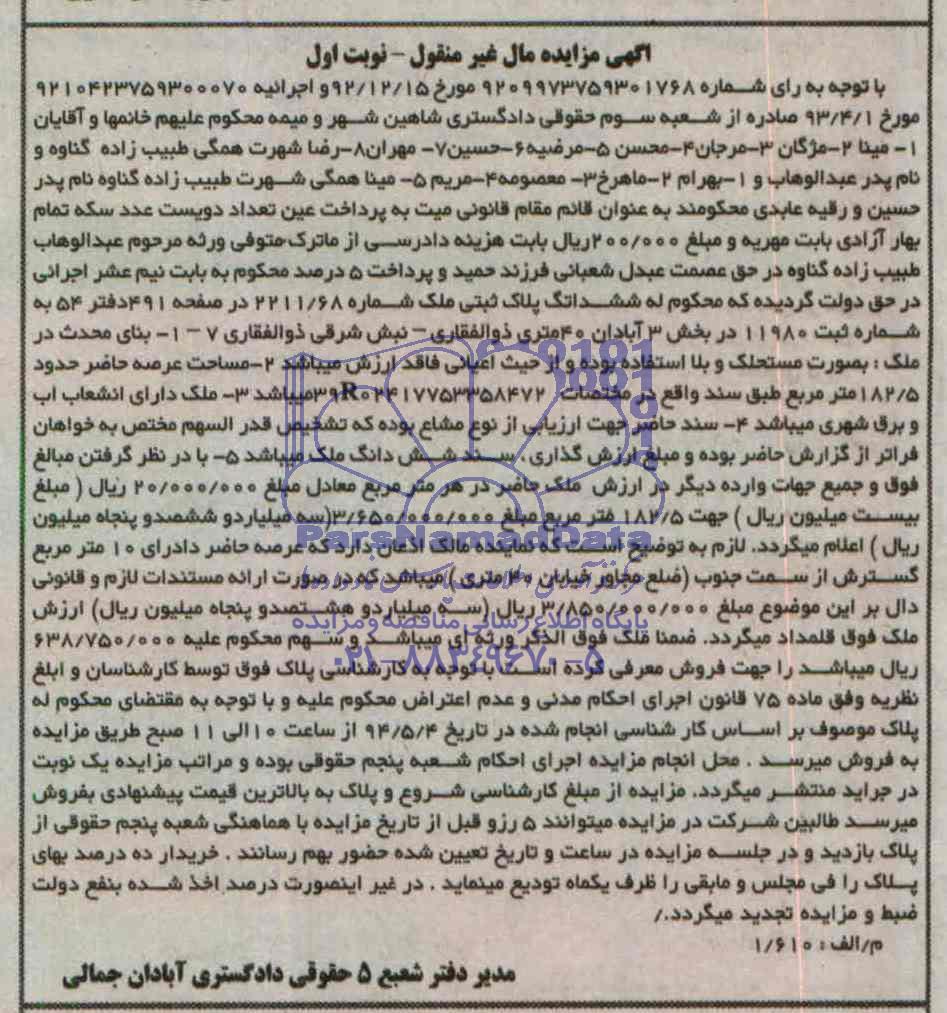 اگهی مزایده مال غیر منقول - نوبت اول
با توجه به رای شماره ۹۲۰۹۹۷۳۷۵۹۳۰۱۷۶۸ مورخ ۹۲/۱۲/۱۵و اجرائیه ۹۲۱۰۴۲۳۷۵۹۳۰۰۰۷۰
مورخ ۹۳/۴/۱ صادره از شعبه سوم حقوقی دادگستری شاهین شهر و میمه محکوم علیهم خانمها و آقایان
۱- مینا ۲-مژگان ۳-مرجان۴-محسن ۵-مرضیه۶-حسین۷- مهران۸-رضا شهرت همگی طبیب زاده گناوه و
نام پدر عبدالوهاب و ۱-بهرام ۲-ماهرخ۳- معصومه۴-مریم ۵- مینا همگی شهرت طبیب زاده گناوه نام پدر
حسین و رقیه عابدی محکومند به عنوان قائم مقام قانونی میت به پرداخت عین تعداد دویست عدد سکه تمام
بهار آزادی بابت مهریه و مبلغ ۲۰۰/۰۰۰ریال بابت هزینه دادرسی از ماترک متوفی ورثه مرحوم عبدالوهاب
طبیب زاده گناوه در حق عصمت عبدل شعبانی فرزند حمید و پرداخت ۵ درصد محکوم به بابت نیم عشر اجرائی
در حق دولت گردیده که محکوم له ششداتگ پلاک ثبتی ملک شماره ۲۲۱۱/۶۸ در صفحه ۴۹۱دفتر ۵۴ به
شماره ثبت ۱۱۹۸۰ در بخش ۳ آبادان ۴۰متری ذوالفقاری – نبش شرقی ذوالفقاری ۷ – ۱- بنای محدث در
ملک : بصورت مستحلک و بلا استفاده بوده و از حیث اعیانی فاقد ارزش میباشد ۲-مساحت عرصه حاضر حدود
۱۸۲/۵متر مربع طبق سند واقع در مختصات ۳۹R۰۲۴۱۷۷۵۳۳۵۸۴۷۲میباشد ۳- ملک دارای انشعاب اب
و برق شهری میباشد ۴- سند حاضر جهت ارزیابی از نوع مشاع بوده که تشخیص قدر السهم مختص به خواهان
فراتر از گزارش حاضر بوده و مبلغ ارزش گذاری ، سند شش دانگ ملک میباشد ۵- با در نظر گرفتن مبالغ
فوق و جمیع جهات وارده دیگر در ارزش ملک حاضر در هر متر مربع معادل مبلغ ۲۰/۰۰۰/۰۰۰ ریال ( مبلغ
بیست میلیون ریال ) جهت ۱۸۲/۵ متر مربع مبلغ ۳/۶۵۰/۰۰۰/۰۰۰(سه میلیاردو ششصدو پنجاه میلیون
ریال ) اعلام میگردد. لازم به توضیح است که نماینده مالک اذعان دارد که عرصه حاضر دادرای ۱۰ متر مربع
گسترش از سمت جنوب (ضلع مجاور خیابان ۴۰ متری ) میباشد که در صورت ارائه مستندات لازم و قانونی
دال بر این موضوع مبلغ ۳/۸۵۰/۰۰۰/۰۰۰ ریال (سه میلیاردو هشتصدو پنجاه میلیون ریال) ارزش
ملک فوق قلمداد میگردد. ضمنا ملک فوق الذکر ورثه ای میباشد و سهم محکوم علیه ۶۳۸/۷۵۰/۰۰۰
ریال میباشد را جهت فروش معرفی کرده است با توجه به کارشناسی پلاک فوق توسط کارشناسان و ابلغ
نظریه وفق ماده ۷۵ قانون اجرای احکام مدنی و عدم اعتراض محکوم علیه و با توجه به مقتضای محکوم له
پلاک موصوف بر اساس کار شناسی انجام شده در تاریخ ۹۴/۵/۴ از ساعت ۱۰الی ۱۱ صبح طریق مزایده
به فروش میرسد . محل انجام مزایده اجرای احکام شعبه پنجم حقوقی بوده و مراتب مزایده یک نوبت
در جراید منتشر میگردد. مزایده از مبلغ کارشناسی شروع و پلاک به بالاترین قیمت پیشنهادی بفروش
میرسد طالبین شرکت در مزایده میتوانند ۵ رزو قبل از تاریخ مزایده با هماهنگی شعبه پنجم حقوقی از
پلاک بازدید و در جلسه مزایده در ساعت و تاریخ تعیین شده حضور بهم رسانند . خریدار ده درصد بهای
پلاک را فی مجلس و مابقی را ظرف یکماه تودیع مینماید . در غیر اینصورت درصد اخذ شده بنفع دولت
ضبط و مزایده تجدید میگردد./
م/الف : ۱/۶۱۰
مدیر دفتر شعبع ۵ حقوقی دادگستری آبادان جمالی
ParsNamadData
پایگاه اطلاع رسانی مناقصه و مزایده
۰۲۱-۸۸۳۴۹۶۷۰-۵